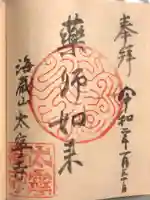 奉拝
令和二年一月三十日
薬師如来
海蔵山 太寧寺
太寧